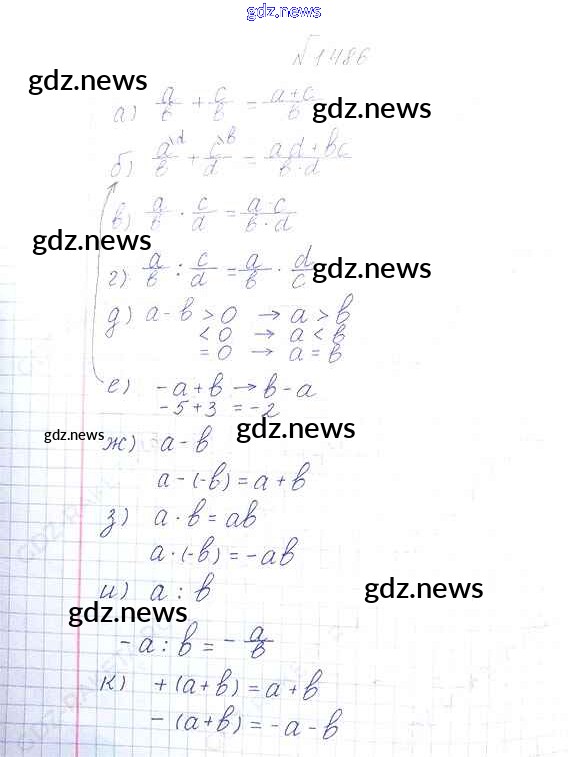 gdz.news
№1486
gdz.news
а) a/b + c/b = a+c/b
gdz.news
б) a\d/b + c\b/d = ad+bc/b·d
в) a/b · c/d = a·c/b·d
gdz.news
г) a/b : c/d = a/b · d/c
gdz.news
д) a-b > 0 → a > b
< 0 → a < b
= 0 → a = b
е) -a+b → b-a
-5+3 = -2
gdz.news
gdz.news
ж) a-b
a-(-b) = a+b
з) a·b = ab
a·(-b) = -ab
и) a : b
gdz.news
gdz.news
-a : b = - a/b
к) +(a+b) = a+b
-(a+b) = -a-b